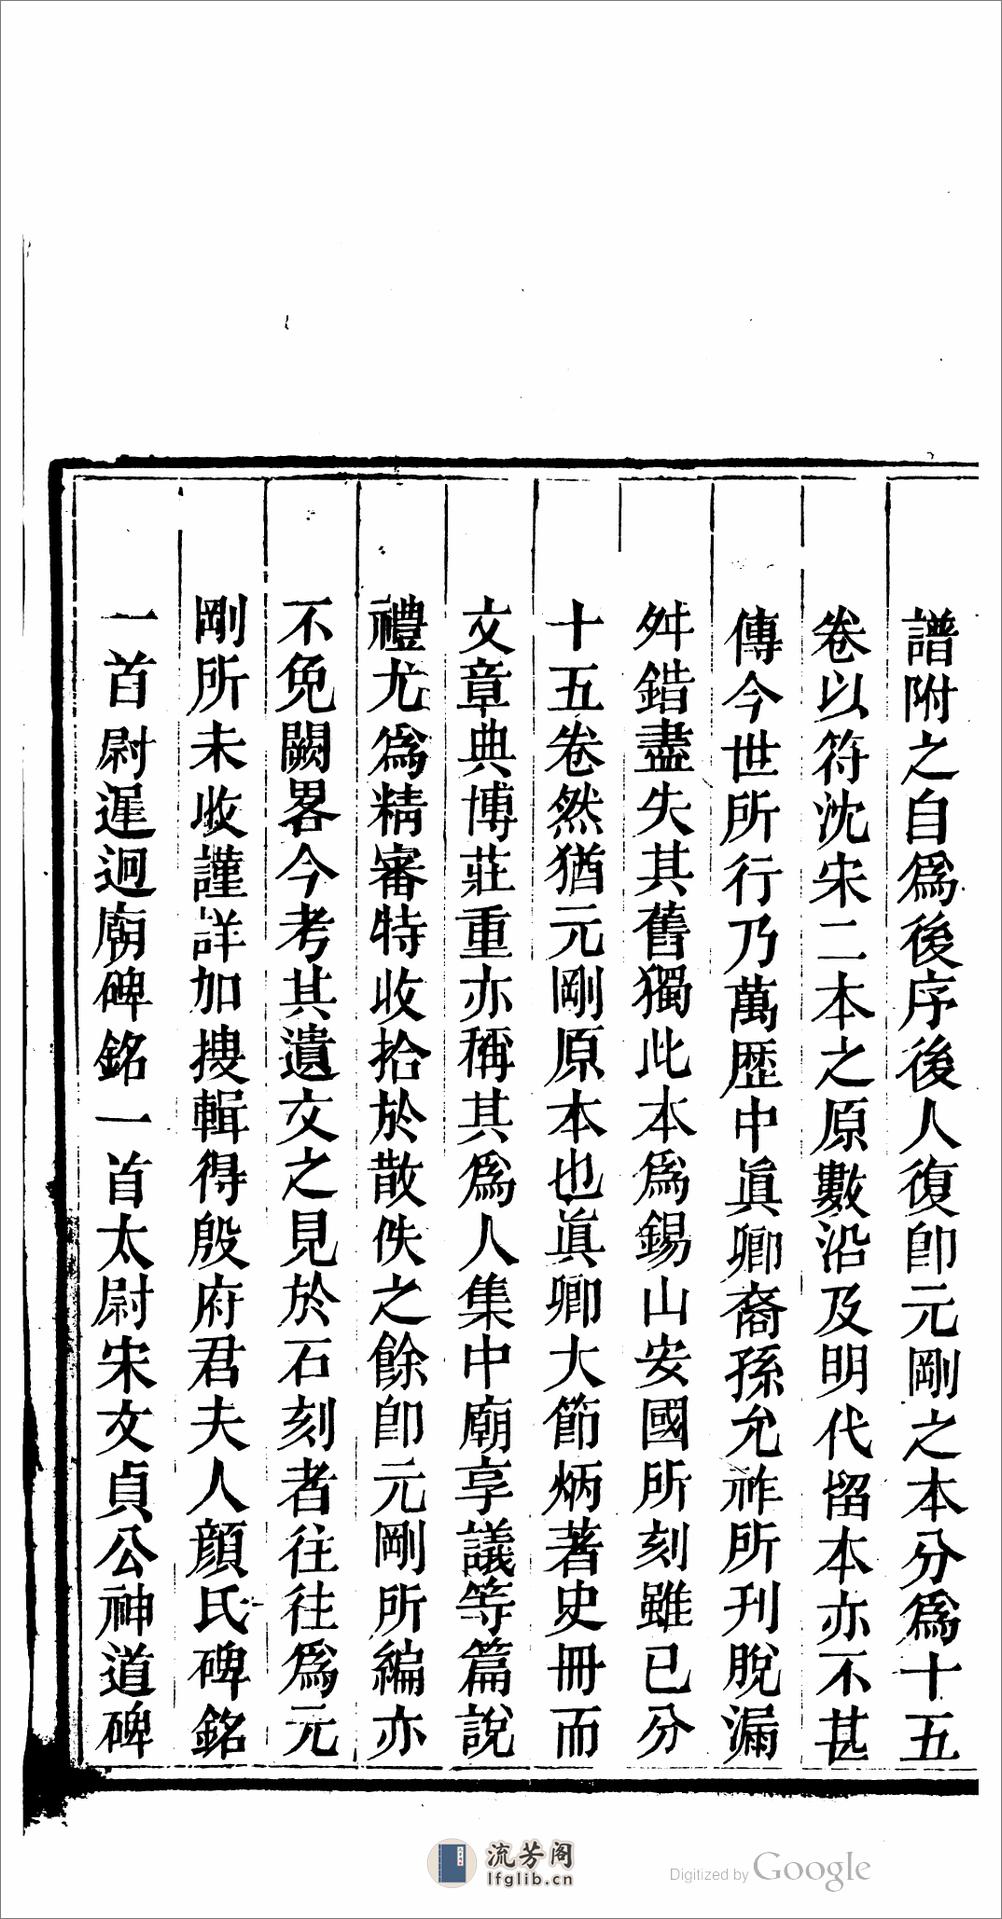 譜附之自爲後序後人復卽元剛之本分爲十五
卷以符沈宋二本之原數沿及明代畱本亦不甚
傳今世所行乃萬歷中眞卿裔孫允祚所刊脫漏
舛錯盡失其舊獨此本爲錫山安國所刻雖已分
十五卷然猶元剛原本也眞卿大節炳著史冊而
文章典博莊重亦稱其爲人集中廟享議等篇說
禮尤爲精審特收拾於散佚之餘卽元剛所編亦
不免闕畧今考其遺文之見於石刻者往往爲元
剛所未收謹詳加搜輯得殷府君夫人顏氏碑銘
一首尉遲迥廟碑銘一首太尉宋文貞公神道碑
流芳阁
lfglib.cn
Digitized by Google